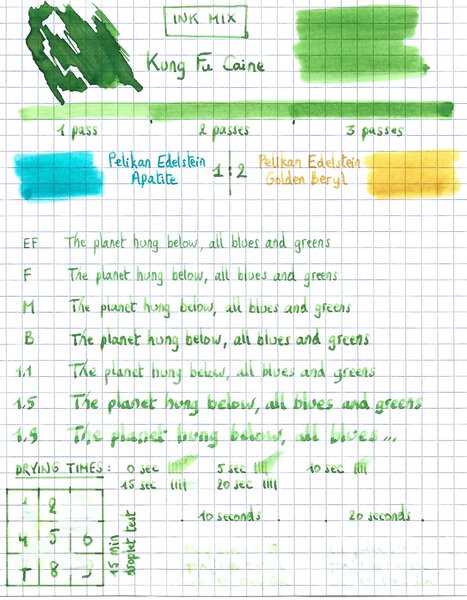 INK MIX
Kung Fu Caine
1 pass 2 passes 3 passes
Pelikan Edelstein Apatite 1|2 Pelikan Edelstein Golden Beryl
EF The planet hung below, all blues and greens
F The planet hung below, all blues and greens
M The planet hung below, all blues and greens
B The planet hung below, all blues and greens
1.1 The planet hung below, all blues and greens
1.5 The planet hung below, all blues and greens
1.9 The planet hung below, all blues ...
DRYING TIMES: 0 sec 5 sec 10 sec
15 sec 20 sec
1 2
4 5 6
7 8 9
15 min droplet test
10 seconds 20 seconds